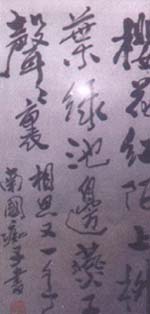 櫻花紅陌上柳
葉綠池邊燕子
聲聲裏相思又一年
南國痴子書